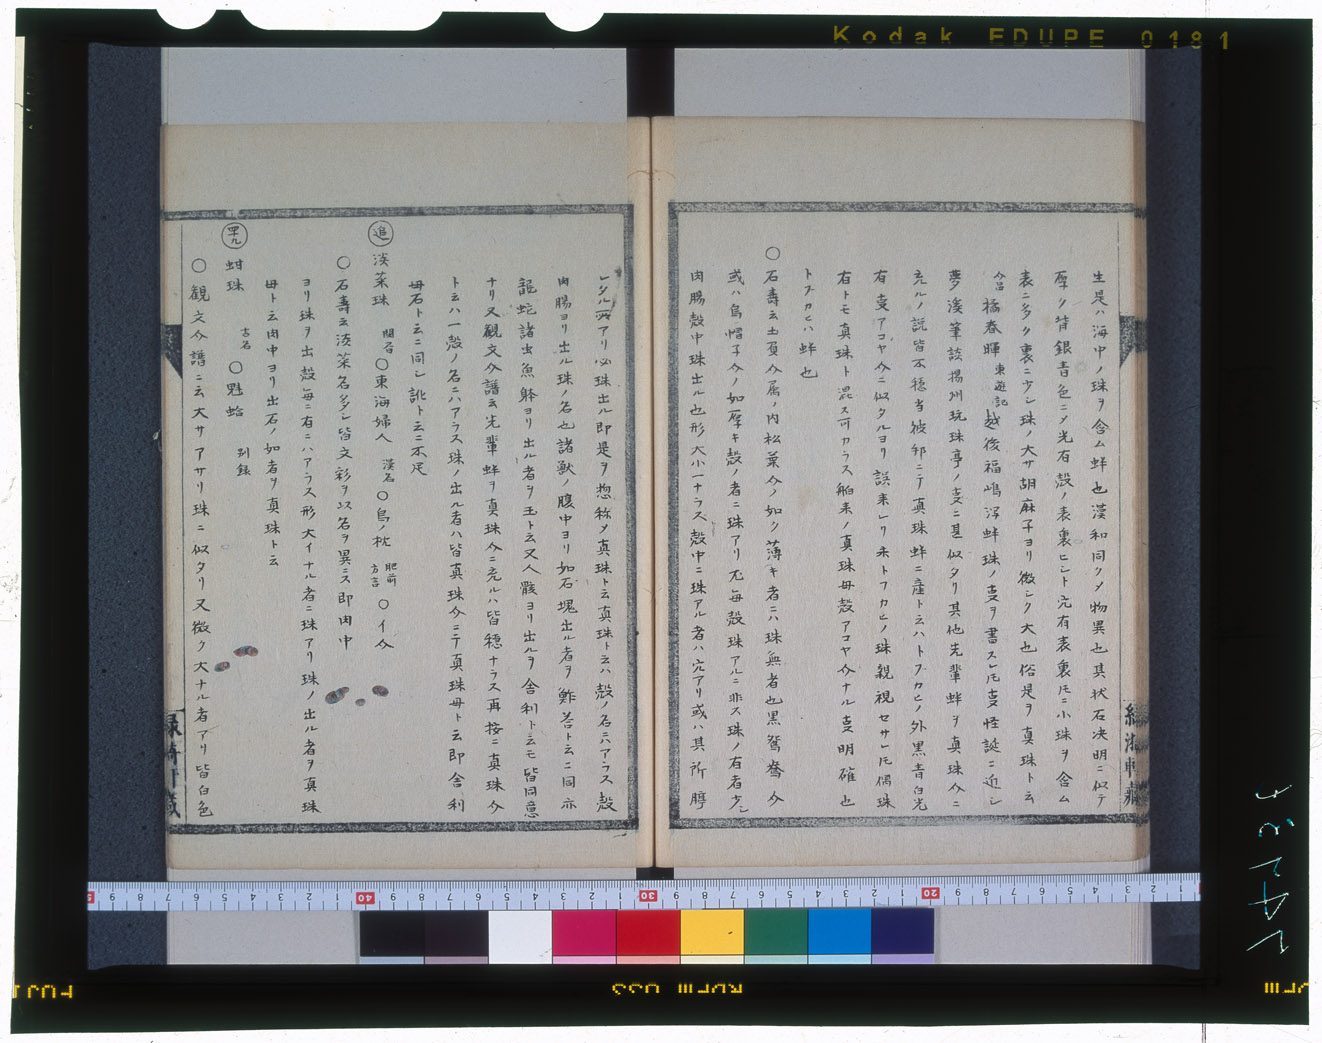 Kodak EDUPE 0181
生是ハ海中ノ珠ヲ含ム蚌也漢和同クメ物異也其状石决明ニ似テ
厚ク背銀青色ニメ光有殻ノ表裏ヒント穴有表裏𪜈ニ小珠ヲ含ム
表ニ多ク裏ニ少シ珠ノ大サ胡麻子ヨリ微シク大也俗是ヲ真珠ト云
橘春暉東遊記越後福嶋潟蚌珠ノ㕝ヲ書スレ𪜈㕝怪誕ニ近シ
夢溪筆談揚州玩珠亭ノ㕝ニ甚似タリ其他先輩蚌ヲ真珠介ニ
充ルノ説皆不穏当彼邦ニテ真珠蚌ニ産トニハトブカヒノ外黒青白光
有㕝アコヤ介ニ似タルヨリ誤来レリ未トフカヒノ珠親視セサレ𪜈偶珠
有トモ真珠ト混ス可カラス舶来ノ真珠母殻アコヤ介ナル㕝明確也
トブカヒハ蚌也
○石壽云土貢介属ノ内松葉介ノ如ク薄キ者ニハ珠無者也黒鴛鴦介
或ハ烏帽子介ノ如厚キ殻ノ者ニ珠アリ尤毎殻珠アルニ非ス珠ノ有者少シ
肉腸殻中珠出ル也形大小一ナラス殻中ニ珠アル者ハ穴アリ或ハ其所脝
レタル所アリ必珠出ル即是ヲ惣称メ真珠ト云真珠ト云ハ殻ノ名ニハアラス殻
肉腸ヨリ出ル珠ノ名也諸獣ノ腹中ヨリ如石塊出ル者ヲ鮓荅ト云ニ同亦
龍蛇諸虫魚躰ヨリ出ル者ヲ玉ト云又人骸ヨリ出ルヲ舎利ト云モ皆同意
ナリ又觀文介譜云先輩蚌ヲ真珠介ニ充ルハ皆穏ナラス再按ニ真珠介
ト云ハ一殻ノ名ニハアラス珠ノ出ル者ハ皆真珠介ニテ真珠母ト云即舎利
母石ト云ニ同シ訛ト云ニ不足
追 淡菜珠 閩書 ○東海婦人 漢名 ○烏ノ枕 肥前方言 ○イ介
○石壽云淡菜名多シ皆文彩ヲ以名ヲ異ニス即肉中
ヨリ珠ヲ出殻毎ニ有ニハアラス形大イナル者ニ珠アリ珠ノ出ル者ヲ真珠
母ト云肉中ヨリ出石ノ如者ヲ真珠ト云
蚶珠 古名 ○魁蛤 別録
○観文介譜ニ云大サアサリ珠ニ似タリ又微ク大ナル者アリ皆白色